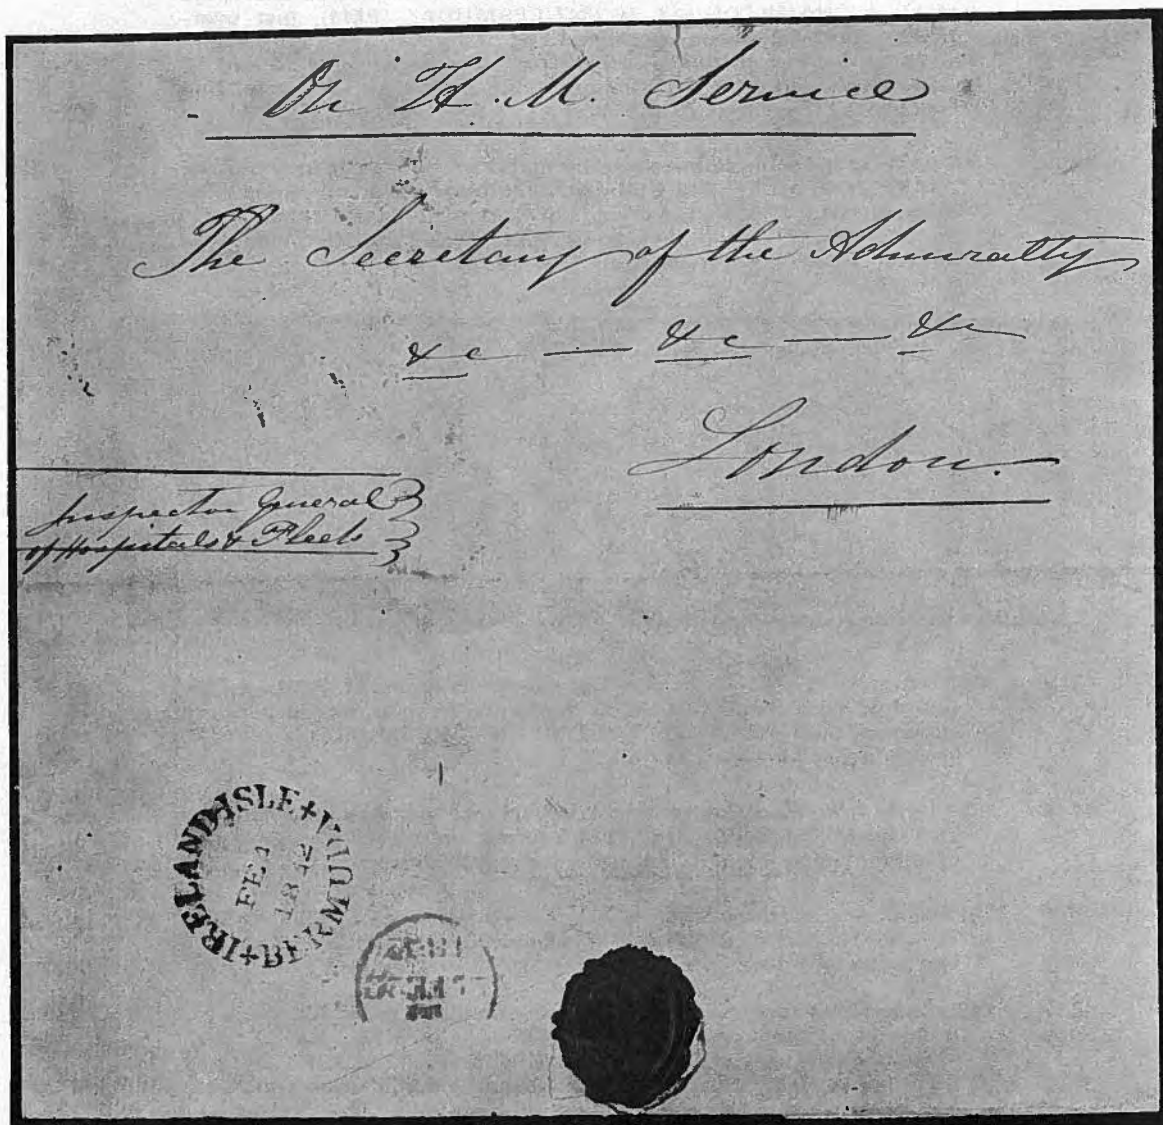 On H. M. Service
The Secretary of the Admiralty
&c — &c — &c
London.
Inspector General
of Hospitals & Fleets
IRELAND ISLE + BERMUDA +
FE 1
1842